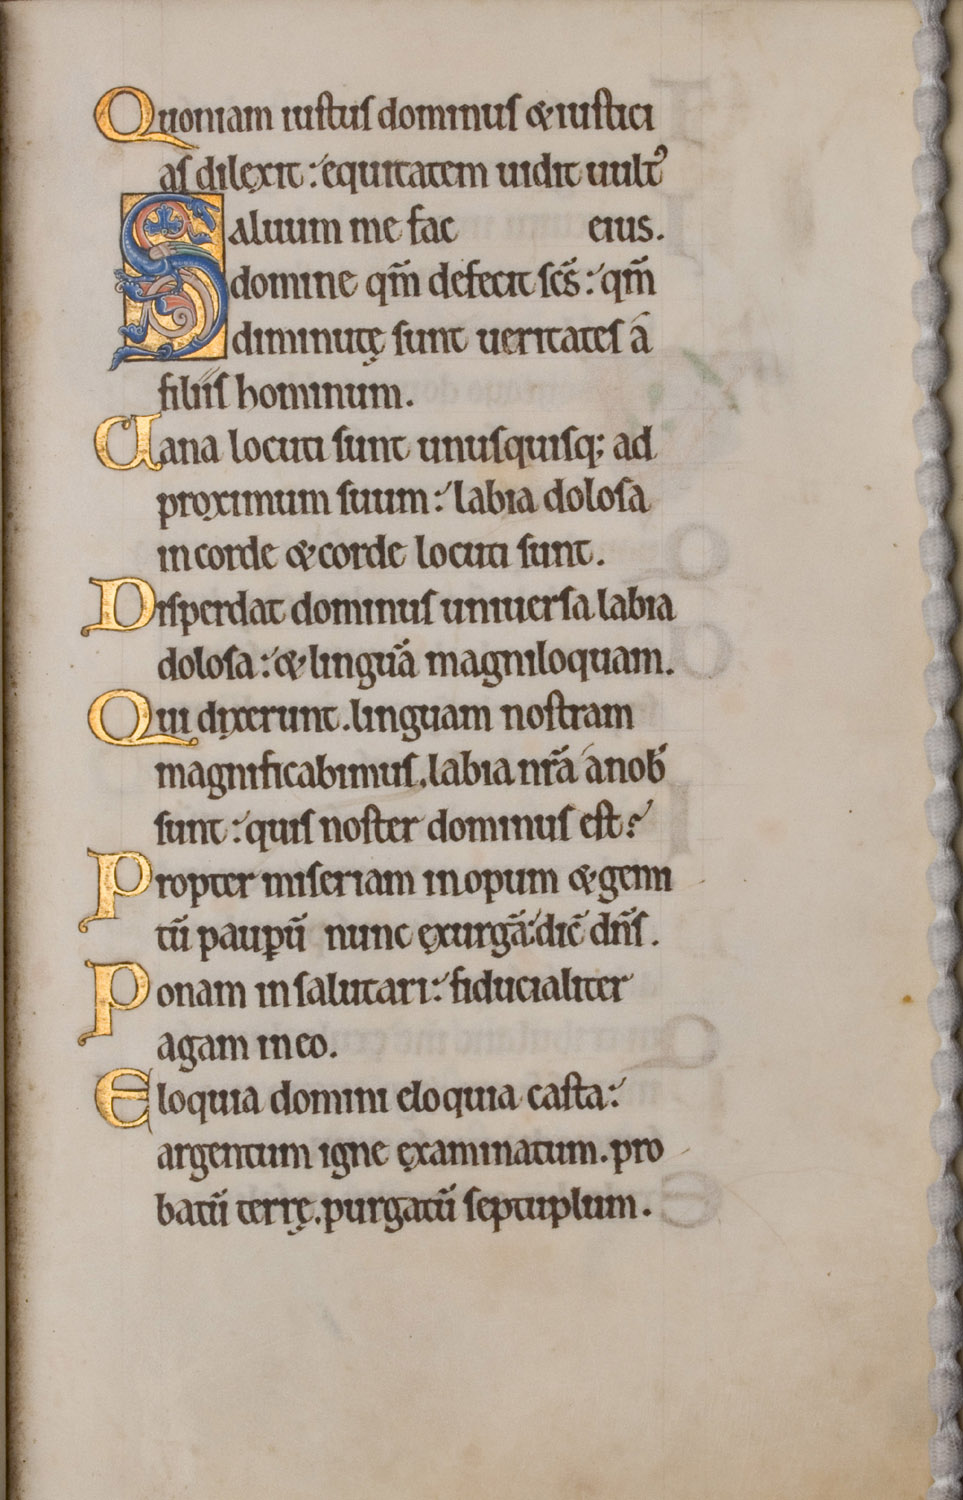 Quoniam iustus dominus & iustici
as dilexit : equitatem uidit uult᾽
Saluum me fac eius.
domine qm̄ defecit sc̄s : qm̄
diminutę sunt ueritates a
filiis hominum.
Uana locuti sunt unusquisq; ad
proximum suum : labia dolosa
in corde & corde locuti sunt.
Disperdat dominus uniuersa labia
dolosa : & linguā magniloquam.
Qui dixerunt. linguam nostram
magnificabimus. labia nr̄a a nob̄
sunt : quis noster dominus est ?
Propter miseriam inopum & gemi
tū pauꝑū nunc exurgā : dic̄ dn̄s.
Ponam in salutari : fiducialiter
agam in eo.
Eloquia domini eloquia casta :
argentum igne examinatum. pro
batū terrę. purgatū septuplum.